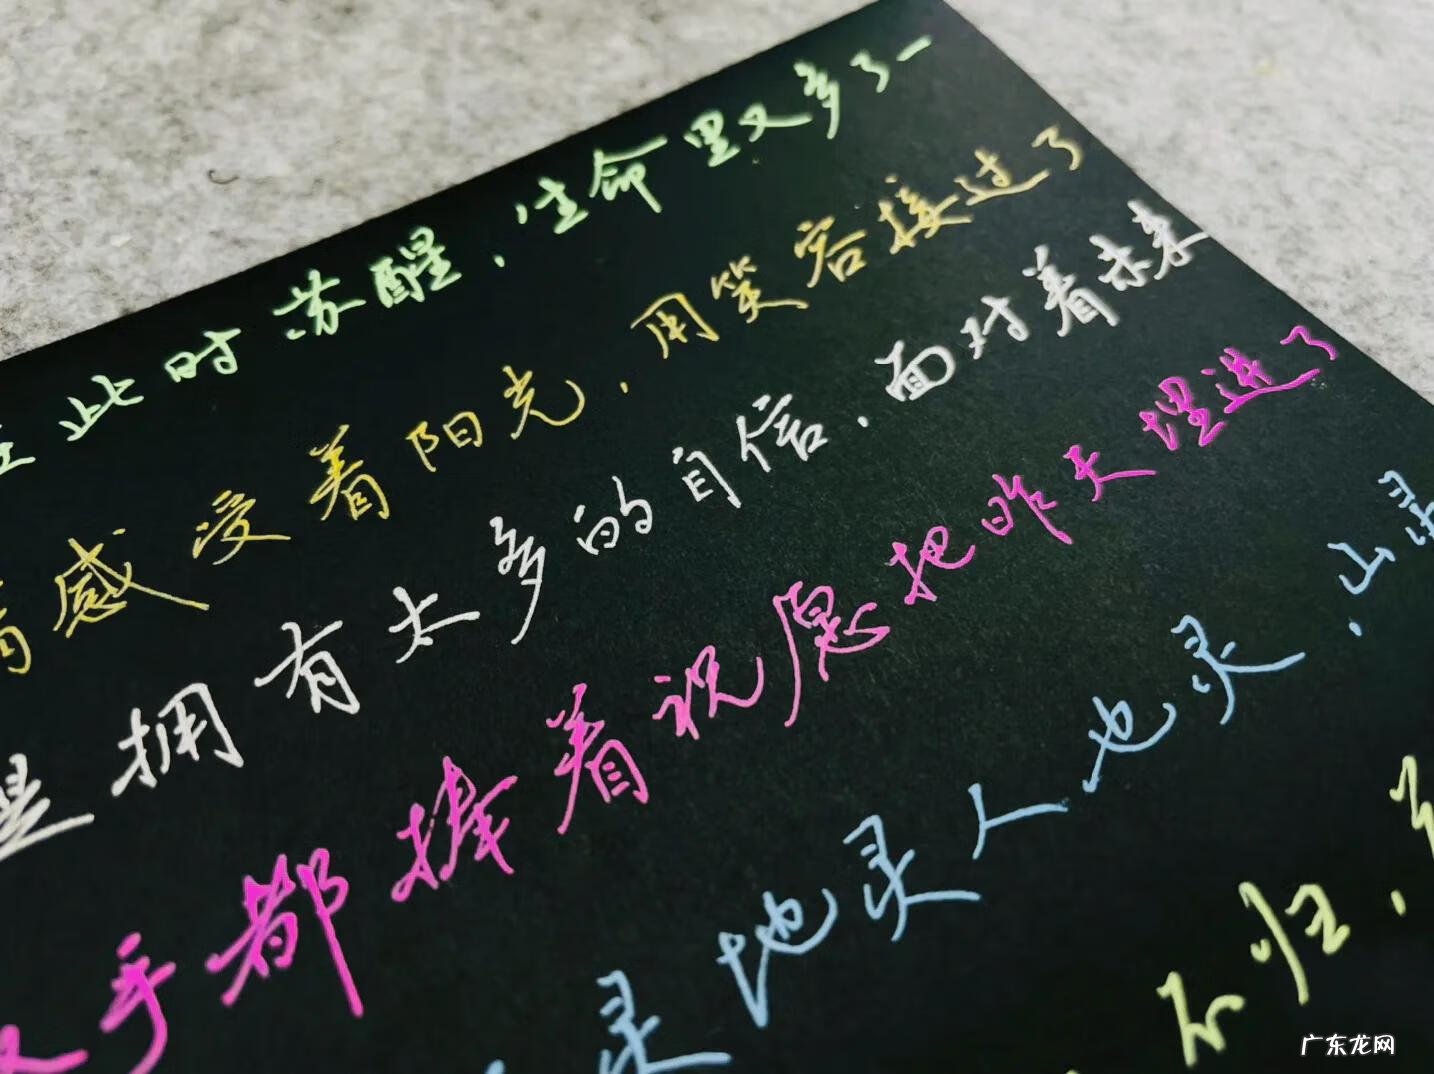 在此时苏醒，生命里又多了一
情感受着阳光，用笑容接过了
是拥有太多的自信，面对着未来
双手都捧着祝愿把昨天埋进了
灵地灵人也灵，山灵
不归，
广东龙网